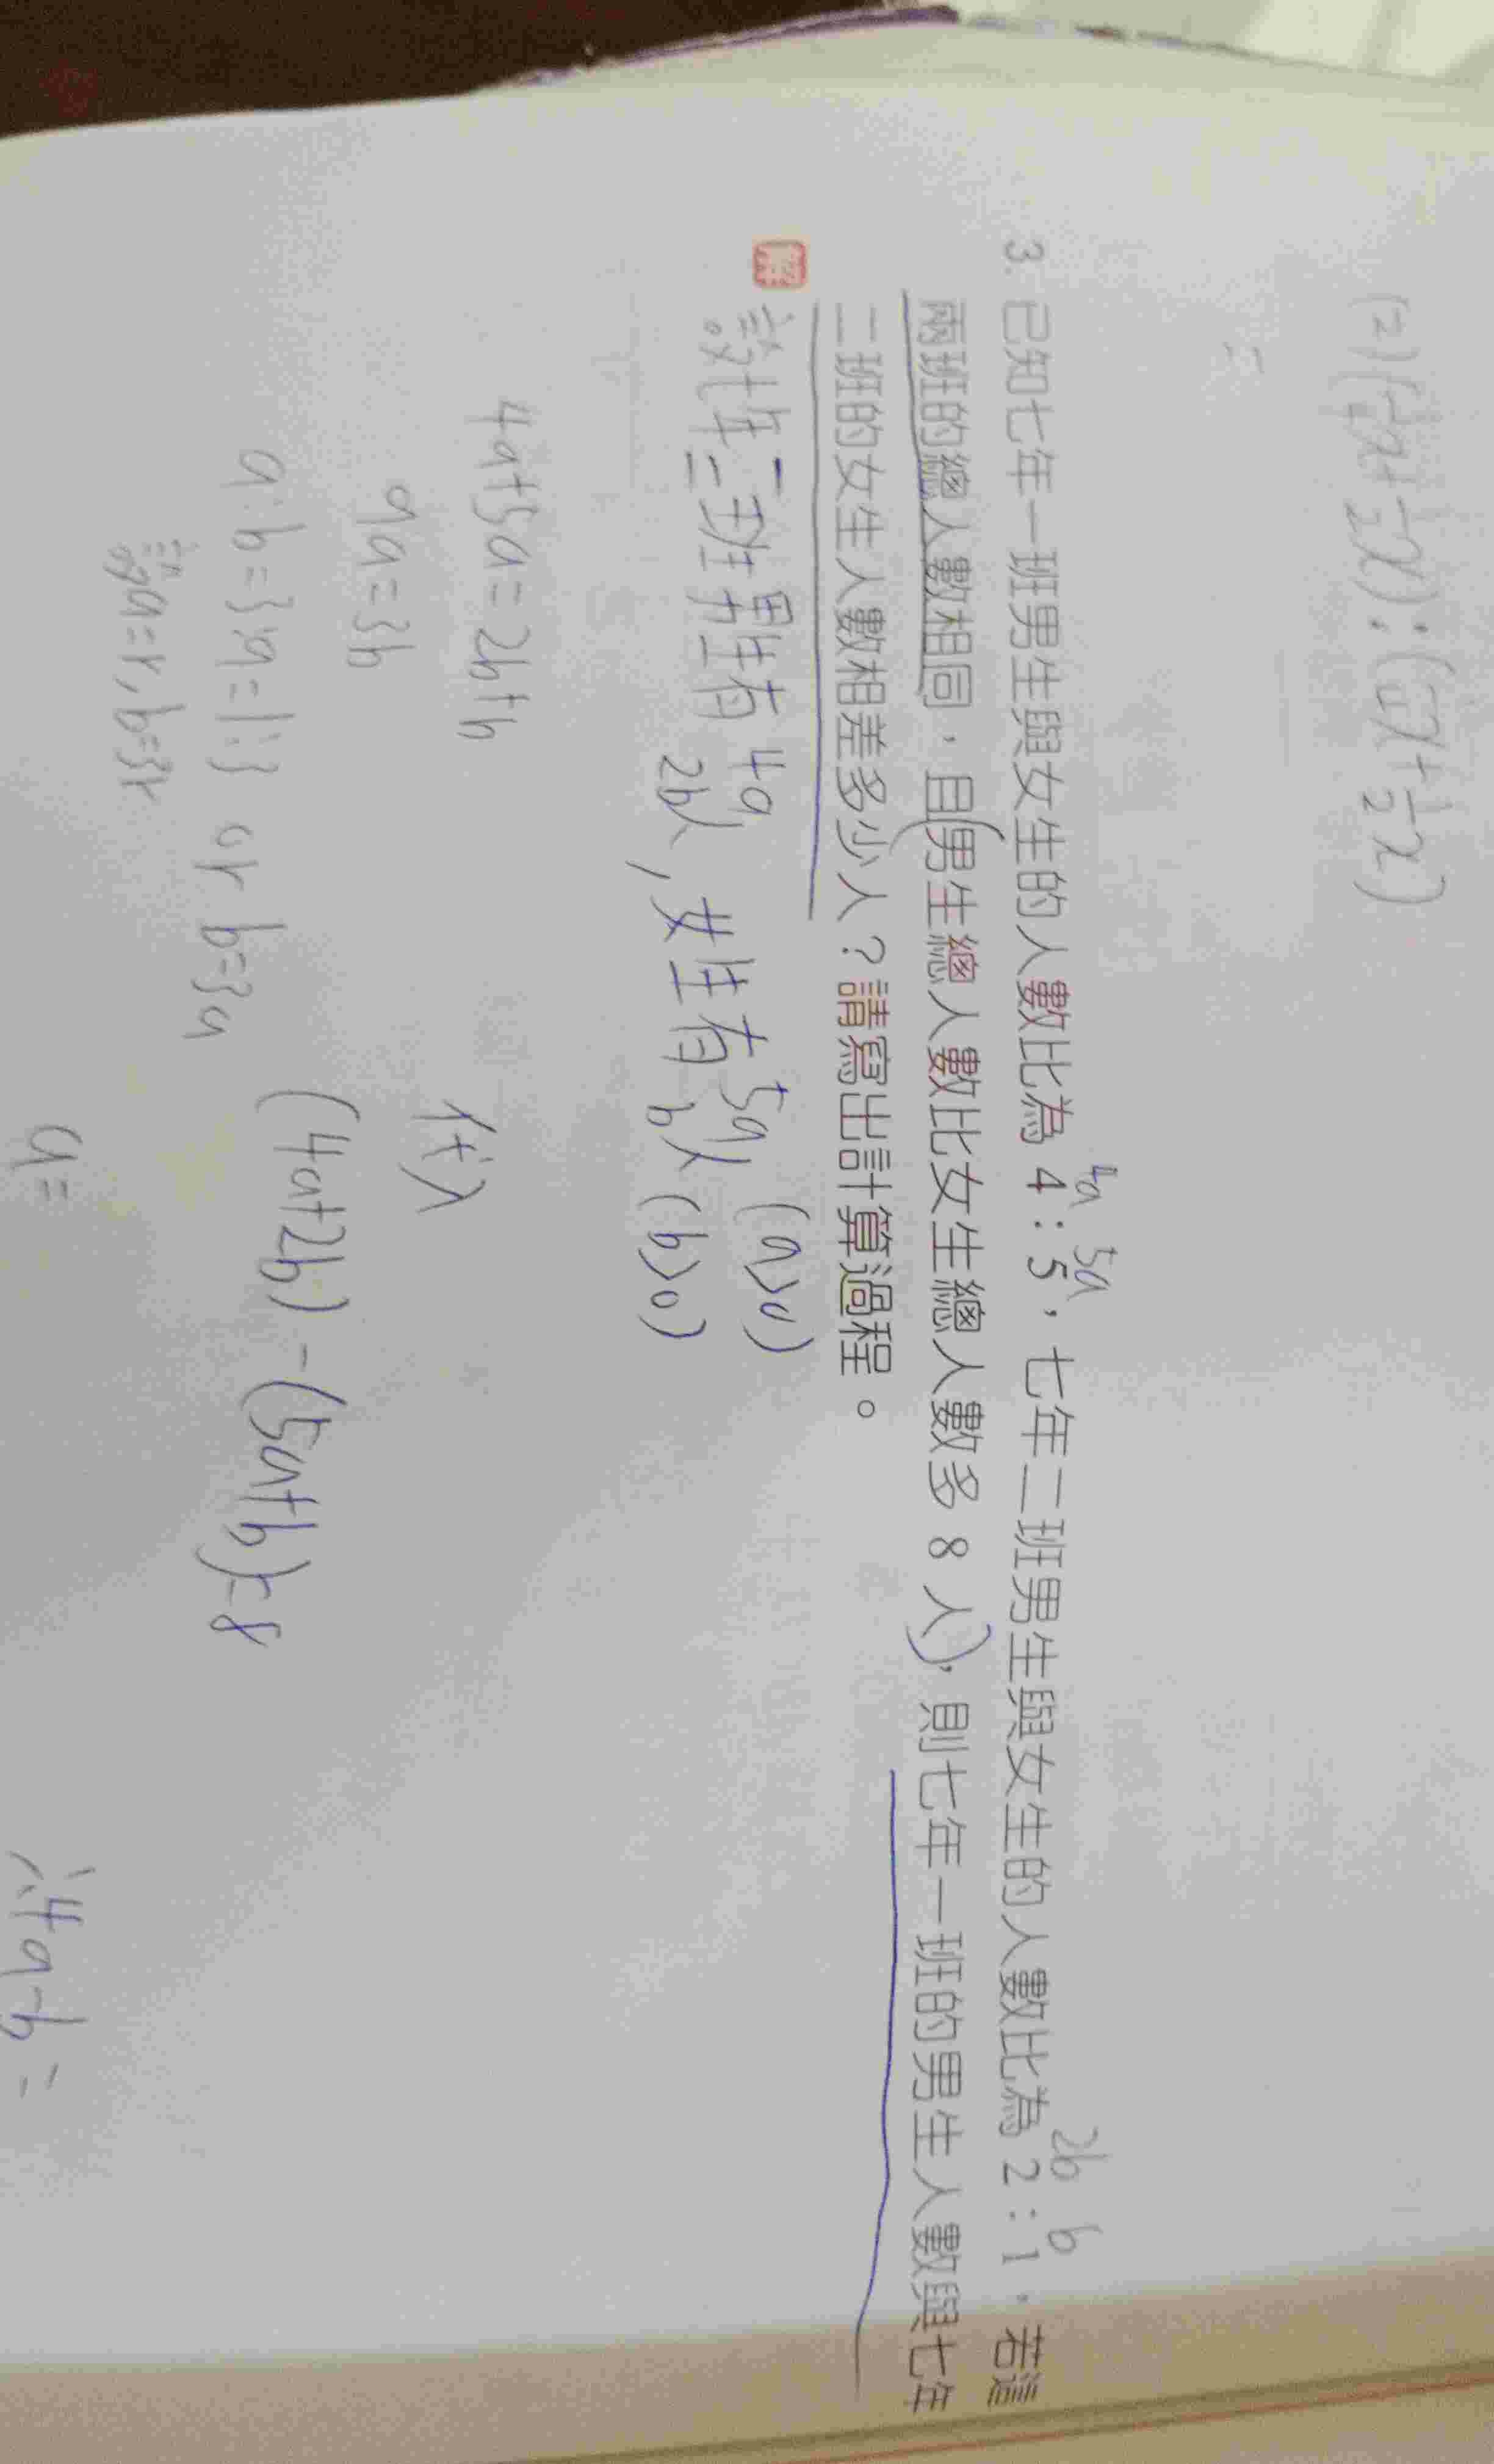 (2) (  x + 1/2 x) : (  x + 1/2 x)
=
4a 5a 2b b
3. 已知七年一班男生與女生的人數比為 4:5，七年二班男生與女生的人數比為 2:1，若這
兩班的總人數相同，且(男生總人數比女生總人數多 8 人)，則七年一班的男生人數與七年
二班的女生人數相差多少人？請寫出計算過程。
解
設七年一二班男生有 4a 2b人，女生有 5a b人 (a>0) (b>0)
4a+5a=2b+b
9a=3b
a:b=3:9=1:3 or b=3a
設a=r, b=3r
代入
(4a+2b)-(5a+b)=8
a=
∴4a-b=